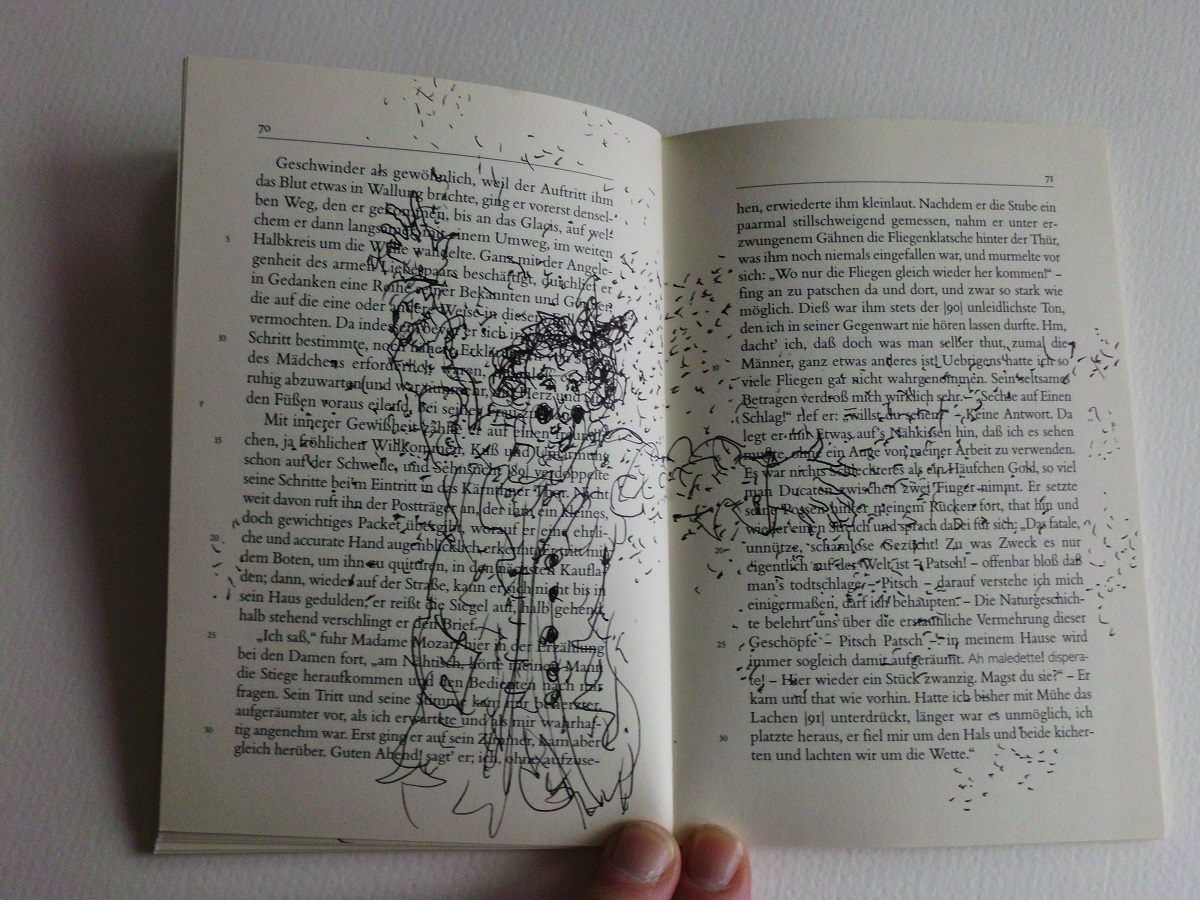 70
Geschwinder als gewöhnlich, weil der Auftritt ihm
das Blut etwas in Wallung brachte, ging er vorerst densel-
ben Weg, den er gekommen, bis an das Glacis, auf wel-
chem er dann langsamer, mit einem Umweg, im weiten
5 Halbkreis um die Wälle wandelte. Ganz mit der Angele-
genheit des armen Liebespaars beschäftigt, durchlief er
in Gedanken eine Reihe seiner Bekannten und Gönner,
die auf die eine oder andere Weise in diesem
vermochten. Da indessen, bevor er sich
10 Schritt bestimmte, noch nähere Erklärungen von Seiten
des Mädchens erforderlich waren,
ruhig abzuwarten und war nunmehr, mit Herz und Sinn
den Füßen voraus eilend, bei seiner Frau
Mit innerer Gewißheit zählte er auf einen
15 chen, ja fröhlichen Willkommen, Kuß und Umarmung
schon auf der Schwelle, und Sehnsucht |89| verdoppelte
seine Schritte beim Eintritt in das Kärnthner Thor. Nicht
weit davon ruft ihn der Postträger an, der ihm ein kleines,
doch gewichtiges Packet übergibt, worauf er eine ehrli-
20 che und accurate Hand augenblicklich erkennt. Er tritt mit
dem Boten, um ihn zu quittiren, in den nächsten Kaufla-
den; dann, wieder auf der Straße, kann er sich nicht bis in
sein Haus gedulden; er reißt die Siegel auf, halb gehend,
halb stehend verschlingt er den Brief.
25 „Ich saß,“ fuhr Madame Mozart hier in der Erzählung
bei den Damen fort, „am Nähtisch, hörte meinen Mann
die Stiege heraufkommen und den Bedienten nach mir
fragen. Sein Tritt und seine Stimme kam mir beherzter,
aufgeräumter vor, als ich erwartete und als mir wahrhaf-
30 tig angenehm war. Erst ging er auf sein Zimmer, kam aber
gleich herüber. Guten Abend! sagt’ er; ich, ohne aufzuse-
71
hen, erwiederte ihm kleinlaut. Nachdem er die Stube ein
paarmal stillschweigend gemessen, nahm er unter er-
zwungenem Gähnen die Fliegenklatsche hinter der Thür,
was ihm noch niemals eingefallen war, und murmelte vor
sich: „Wo nur die Fliegen gleich wieder her kommen!“ –
fing an zu patschen da und dort, und zwar so stark wie
möglich. Dieß war ihm stets der |90| unleidlichste Ton,
den ich in seiner Gegenwart nie hören lassen durfte. Hm,
dacht’ ich, daß doch was man selber thut, zumal die
10 Männer, ganz etwas anderes ist! Uebrigens hatte ich so
viele Fliegen gar nicht wahrgenommen. Sein seltsames
Betragen verdroß mich wirklich sehr. – „Sechse auf Einen
Schlag!“ rief er: „willst du sehen?“ – Keine Antwort. Da
legt er mir Etwas auf’s Nähkissen hin, daß ich es sehen
mußte, ohne ein Auge von meiner Arbeit zu verwenden.
Es war nichts Schlechteres als ein Häufchen Gold, so viel
man Ducaten zwischen zwei Finger nimmt. Er setzte
seine Possen hinter meinem Rücken fort, that hin und
wieder einen Streich und sprach dabei für sich: „Das fatale,
20 unnütze, schamlose Gezücht! Zu was Zweck es nur
eigentlich auf der Welt ist – Patsch! – offenbar bloß daß
man’s todtschlage – Pitsch – darauf verstehe ich mich
einigermaßen, darf ich behaupten. – Die Naturgeschich-
te belehrt uns über die erstaunliche Vermehrung dieser
25 Geschöpfe – Pitsch Patsch –: in meinem Hause wird
immer sogleich damit aufgeräumt. Ah maledette! dispera-
te! – Hier wieder ein Stück zwanzig. Magst du sie?“ – Er
kam und that wie vorhin. Hatte ich bisher mit Mühe das
Lachen |91| unterdrückt, länger war es unmöglich, ich
30 platzte heraus, er fiel mir um den Hals und beide kicher-
ten und lachten wir um die Wette.“